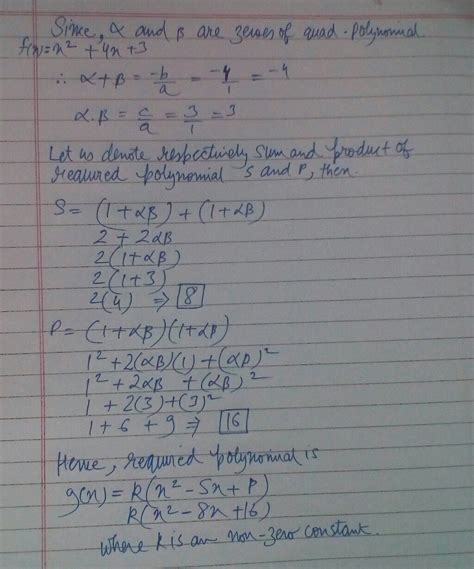 Since, α and β are zeroes of quad. polynomial
f(x)=x² + 4x+3
∴ α+β = -b/a = -4/1 = -4
α.β = c/a = 3/1 = 3
Let us denote respectively sum and product of
required polynomial s and P, then.
S= (1+αβ) + (1+αβ)
2 + 2αβ
2(1+αβ)
2(1+3)
2(4) ⇒ 8
P= (1+αβ)(1+αβ)
1²+2(αβ)(1)+(αβ)²
1²+2αβ +(αβ)²
1 + 2(3)+(3)²
1+6 +9 ⇒ 16
Hence, required polynomial is
g(x)= k(x²-Sx+P)
k(x²-8x+16)
where k is an non-zero constant.